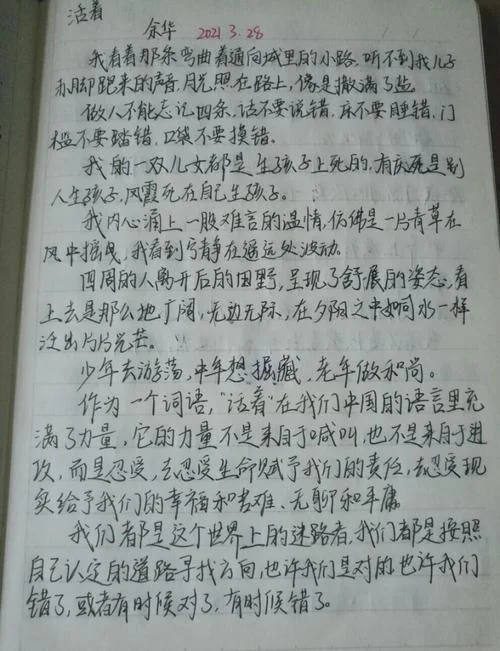 活着
余华 2021.3.28
我看着那条弯曲着通向城里的小路,听不到我儿子
赤脚跑来的声音,月光照在路上,像是撒满了盐。
做人不能忘记四条,话不要说错,床不要睡错,门
槛不要踏错,口袋不要摸错。
我的一双儿女都是生孩子上死的,有庆死是别
人生孩子,凤霞死在自己生孩子。
我内心涌上一股难言的温情,仿佛是一片青草在
风中摇曳,我看到宁静在遥远处波动。
四周的人离开后的田野,呈现了舒展的姿态,看
上去是那么地广阔,无边无际,在夕阳之中如同水一样
泛出片片光芒。
少年去游荡,中年想掘藏,老年做和尚。
作为一个词语,“活着”在我们中国的语言里充
满了力量,它的力量不是来自于喊叫,也不是来自于进
攻,而是忍受,去忍受生命赋予我们的责任,去忍受现
实给予我们的幸福和苦难、无聊和平庸
我们都是这个世界上的迷路者,我们都是按照
自己认定的道路寻找方向,也许我们是对的也许我们
错了,或者有时候对了,有时候错了。